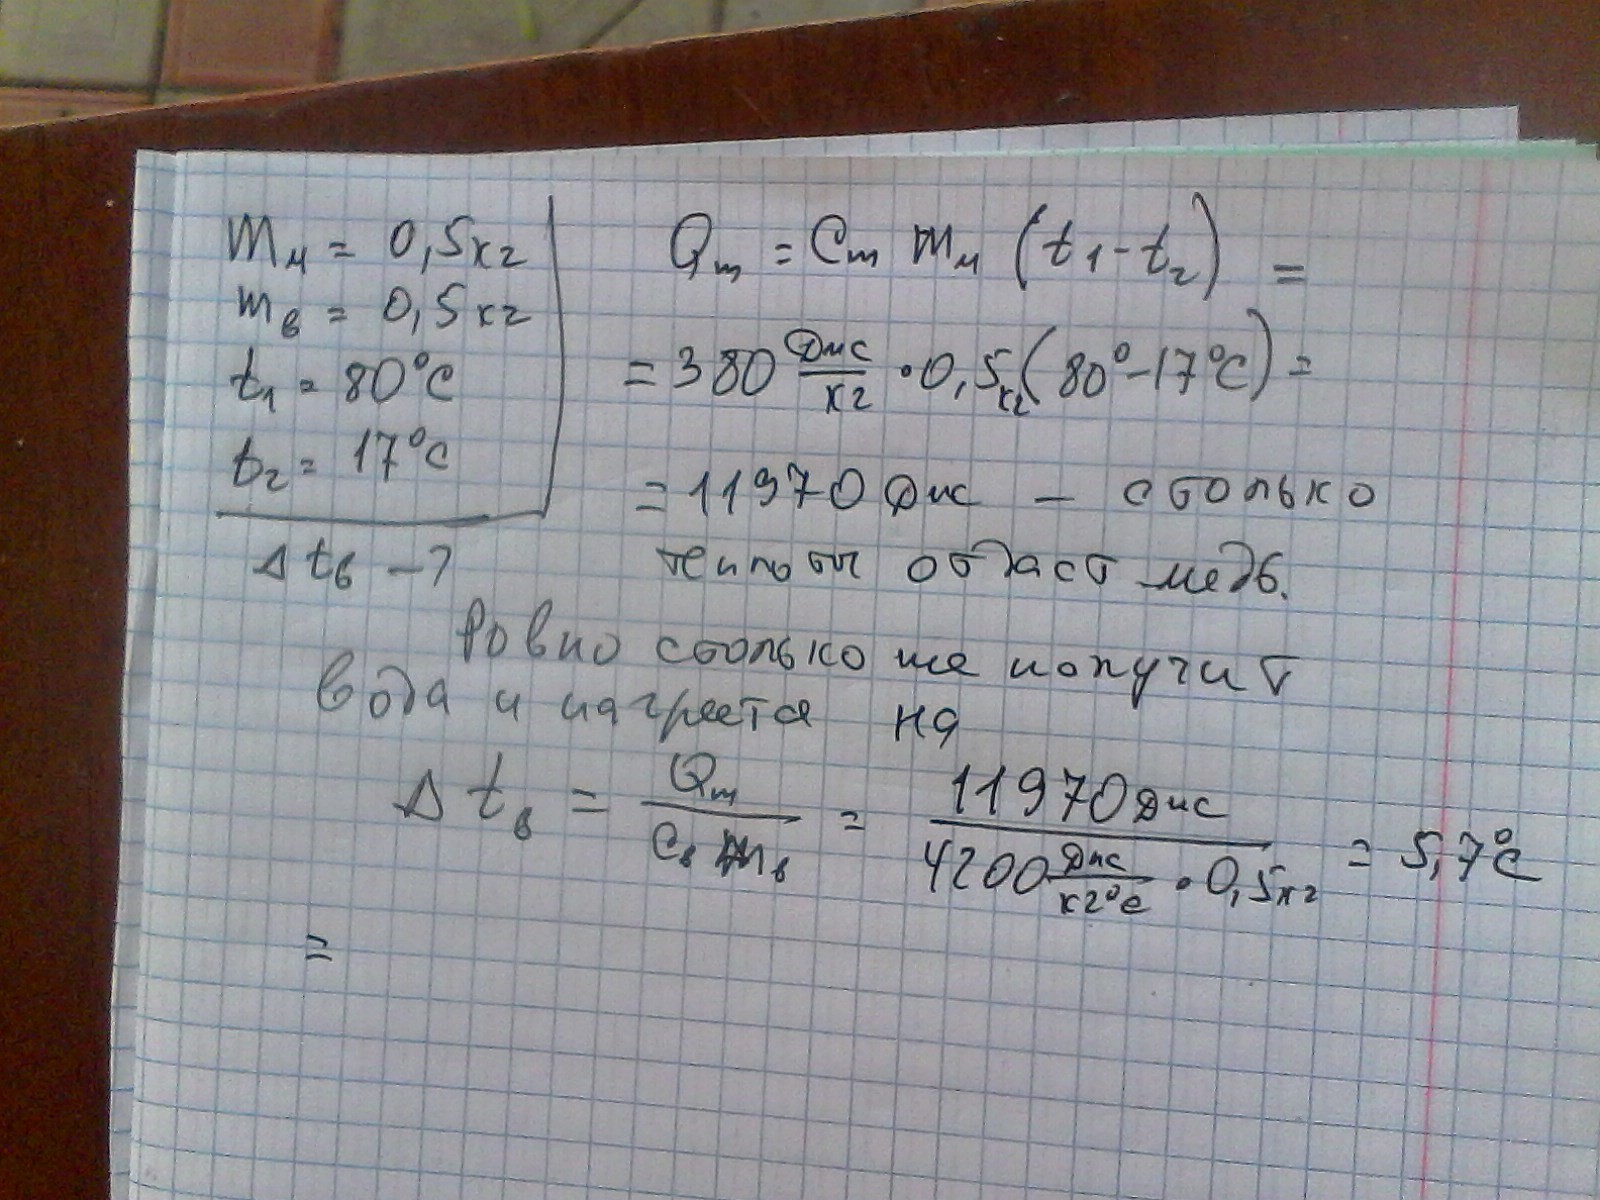 mм = 0,5 кг
mв = 0,5 кг
t₁ = 80°C
t₂ = 17°C
Δtв – ?
Qm = Cm mм (t₁ - t₂) =
= 380 Дж/кг · 0,5 кг (80° – 17°C) =
= 11970 Дж – столько
теплоты отдаст медь.
Ровно столько же получит
вода и нагреется на
Δtв = Qm/(Cв mв) = 11970 Дж/(4200 Дж/кг°C · 0,5 кг) = 5,7°C
=